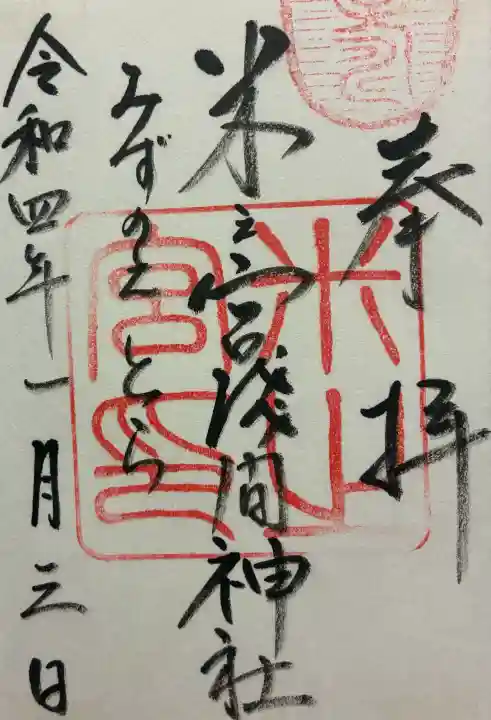 奉拝
米之宮浅間神社
みずのえ とら
令和四年一月三日
米之
宮印